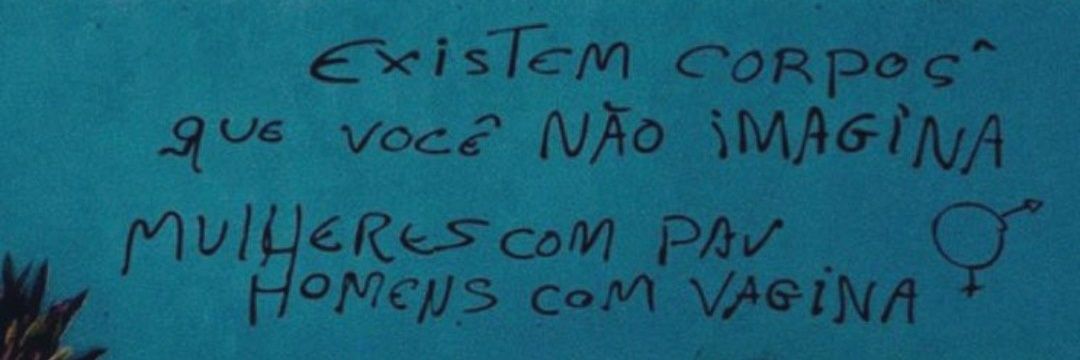 EXISTEM CORPOS
QUE VOCÊ NÃO IMAGINA
MULHERES COM PAU
HOMENS COM VAGINA